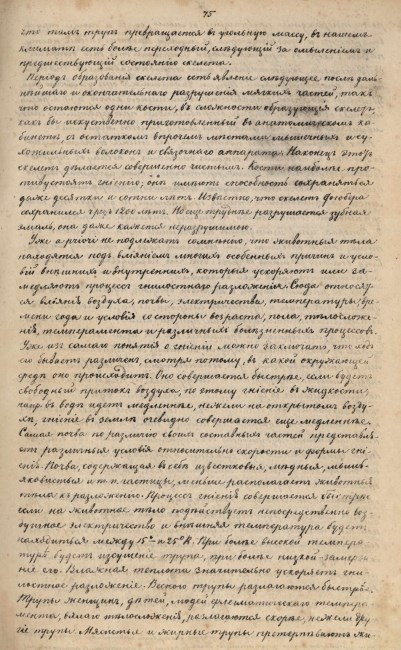 75
превращается въ угольную массу, въ нашемъ
климатѣ есть болѣе переходный, слѣдующій за омыленіемъ и
предшествующій состоянію скелета.
Періодъ образованія скелета есть явленіе слѣдующее послѣ
и окончательнаго разрушенія мягкихъ частей, такъ
что остаются одни кости, въ сложности образующія
какъ бы искуственно приготовленный въ анатомическомъ ка-
бинетѣ, съ остаткомъ впрочемъ мѣстами мышечныхъ и су-
хожильныхъ волоконъ и связочнаго аппарата. Наконецъ этотъ
скелетъ дѣлается совершенно чистымъ. Кости наиболѣе про-
тивустоятъ гніенію; онѣ имѣютъ способность сохраняться
даже десятки и сотни лѣтъ. Извѣстно, что скелетъ
сохранился чрезъ 1200 лѣтъ. Но еще труднѣе разрушается зубная
эмаль, она даже кажется неразрушимою.
Уже a priori не подлежитъ сомнѣнію, что животныя тѣла
находятся подъ вліяніемъ многихъ особенныхъ причинъ и усло-
вій внѣшнихъ и внутреннихъ, которыя ускоряютъ или за-
медляютъ процессъ гнилостнаго разложенія. Сюда относят-
ся, вліяніе воздуха, почвы, электричества, температуры, вре-
мени года и условія со стороны возраста, пола, тѣлосложе-
нія, темперамента и различныхъ болѣзненныхъ процессовъ.
Уже изъ самаго понятія о гніеніи можно заключать, что
бываетъ различенъ, смотря потому, въ какой окружающей
средѣ оно происходитъ. Оно совершается быстрѣе, если будетъ
свободный притокъ воздуха, по этому гніеніе въ жидкости,
напр. въ водѣ идетъ медленнѣе, нежели на открытомъ возду-
хѣ, гніеніе въ землѣ очевидно совершается еще медленнѣе.
Самая почва по различію своихъ составныхъ частей представля-
етъ различныя условія относительно скорости и формы гні-
енія. Почва, содержащая въ себѣ известковыя, мѣдныя, мышь-
яковистыя и т. п. частицы, меньше располагаетъ животныя
тѣла къ разложенію. Процессъ гніенія совершается быстрѣе
если на животное тѣло подѣйствуетъ непосредственно воз-
душное электричество и внѣшняя температура будетъ
находиться между 15° и 25° R. При болѣе высокой темпера-
турѣ будетъ изсушеніе трупа, при болѣе низкой замерза-
ніе его. Влажная теплота значительно ускоряетъ гни-
лостное разложеніе. Весною трупы разлагаются быстрѣе.
Трупы женщинъ, дѣтей, людей флегматическаго темпера-
мента, вялаго тѣлосложенія, разлагаются скорѣе, нежели дру-
гіе трупы. Мясистые и жирные трупы претерпѣваютъ